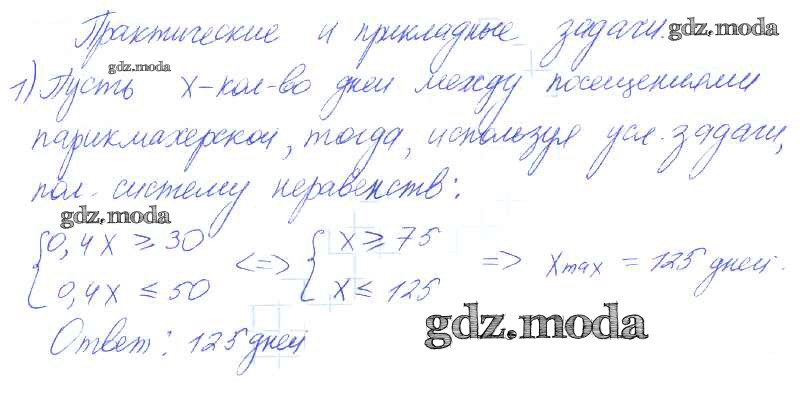 Практические и прикладные задачи. gdz.moda
gdz.moda
1) Пусть x-кол-во дней между посещениями
парикмахерской, тогда, используя усл. задачи,
пол. систему неравенств:
gdz.moda
{0,4x ≥ 30 <=> {x ≥ 75 => xmax = 125 дней.
{0,4x ≤ 50 {x ≤ 125
gdz.moda
Ответ: 125 дней